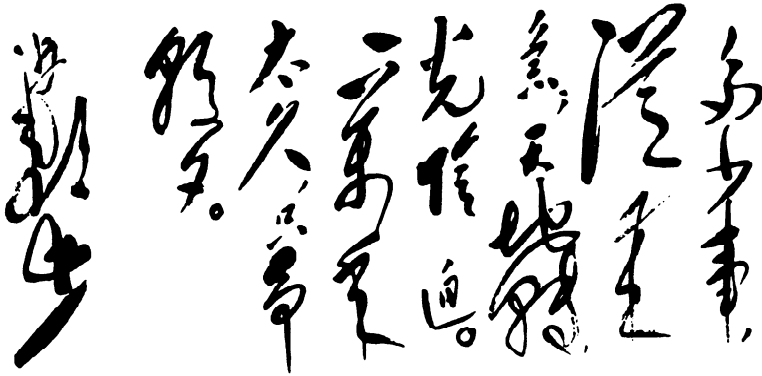 多少事,
從來
急,天地轉,
光陰迫。
一萬年
太久只爭
朝夕。